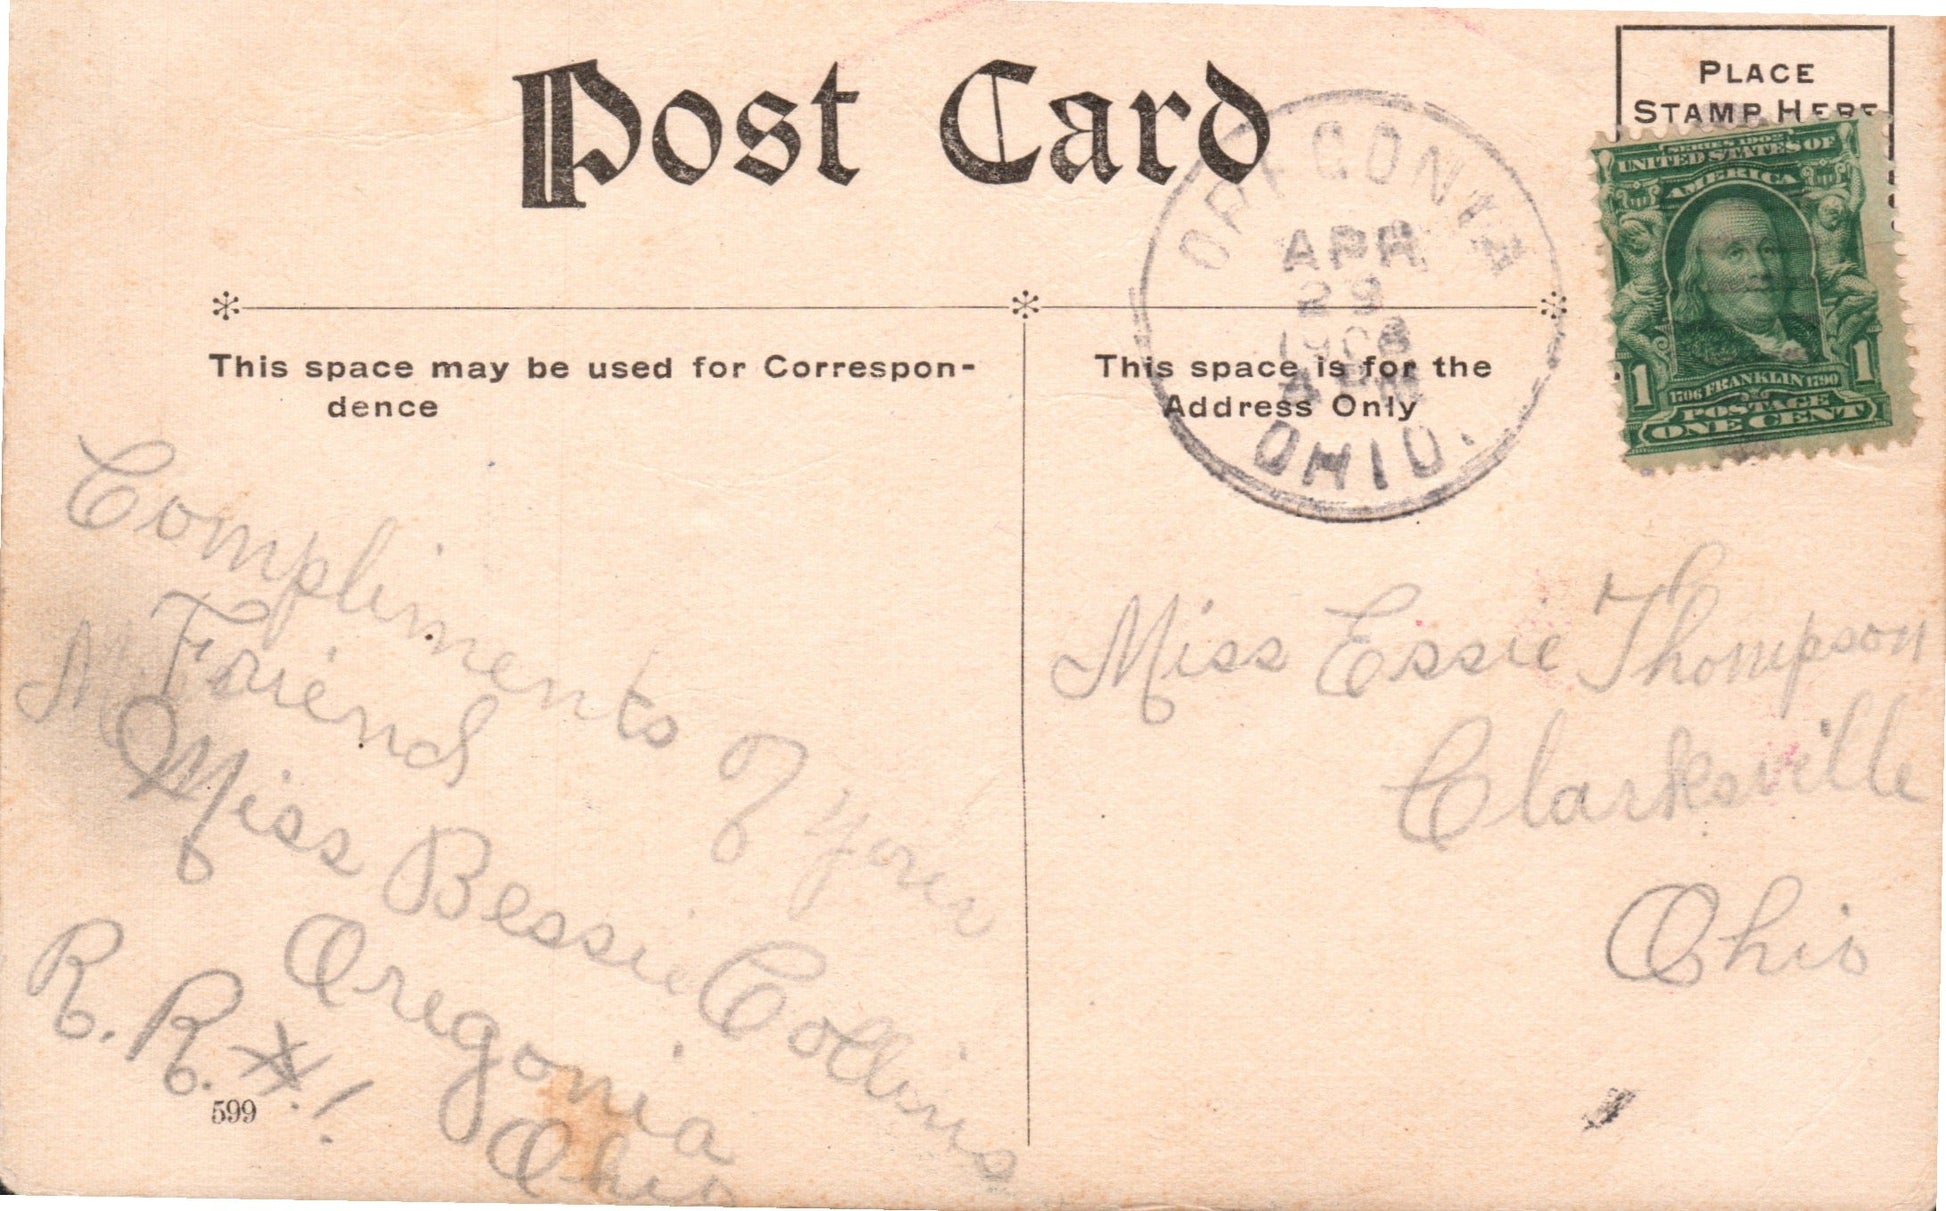 Post Card
PLACE
STAMP HERE
SERIES 1902
UNITED STATES OF
AMERICA
1706 FRANKLIN 1790
1 1
POSTAGE
ONE CENT
OREGONIA
APR
29
1908
OHIO.
This space may be used for Correspon-
dence
This space is for the
Address Only
Compliments of your
Friend
Miss Bessie Collins
Oregonia
Ohio
R. R. #. 1.
599
Miss Essie Thompson
Clarksville
Ohio